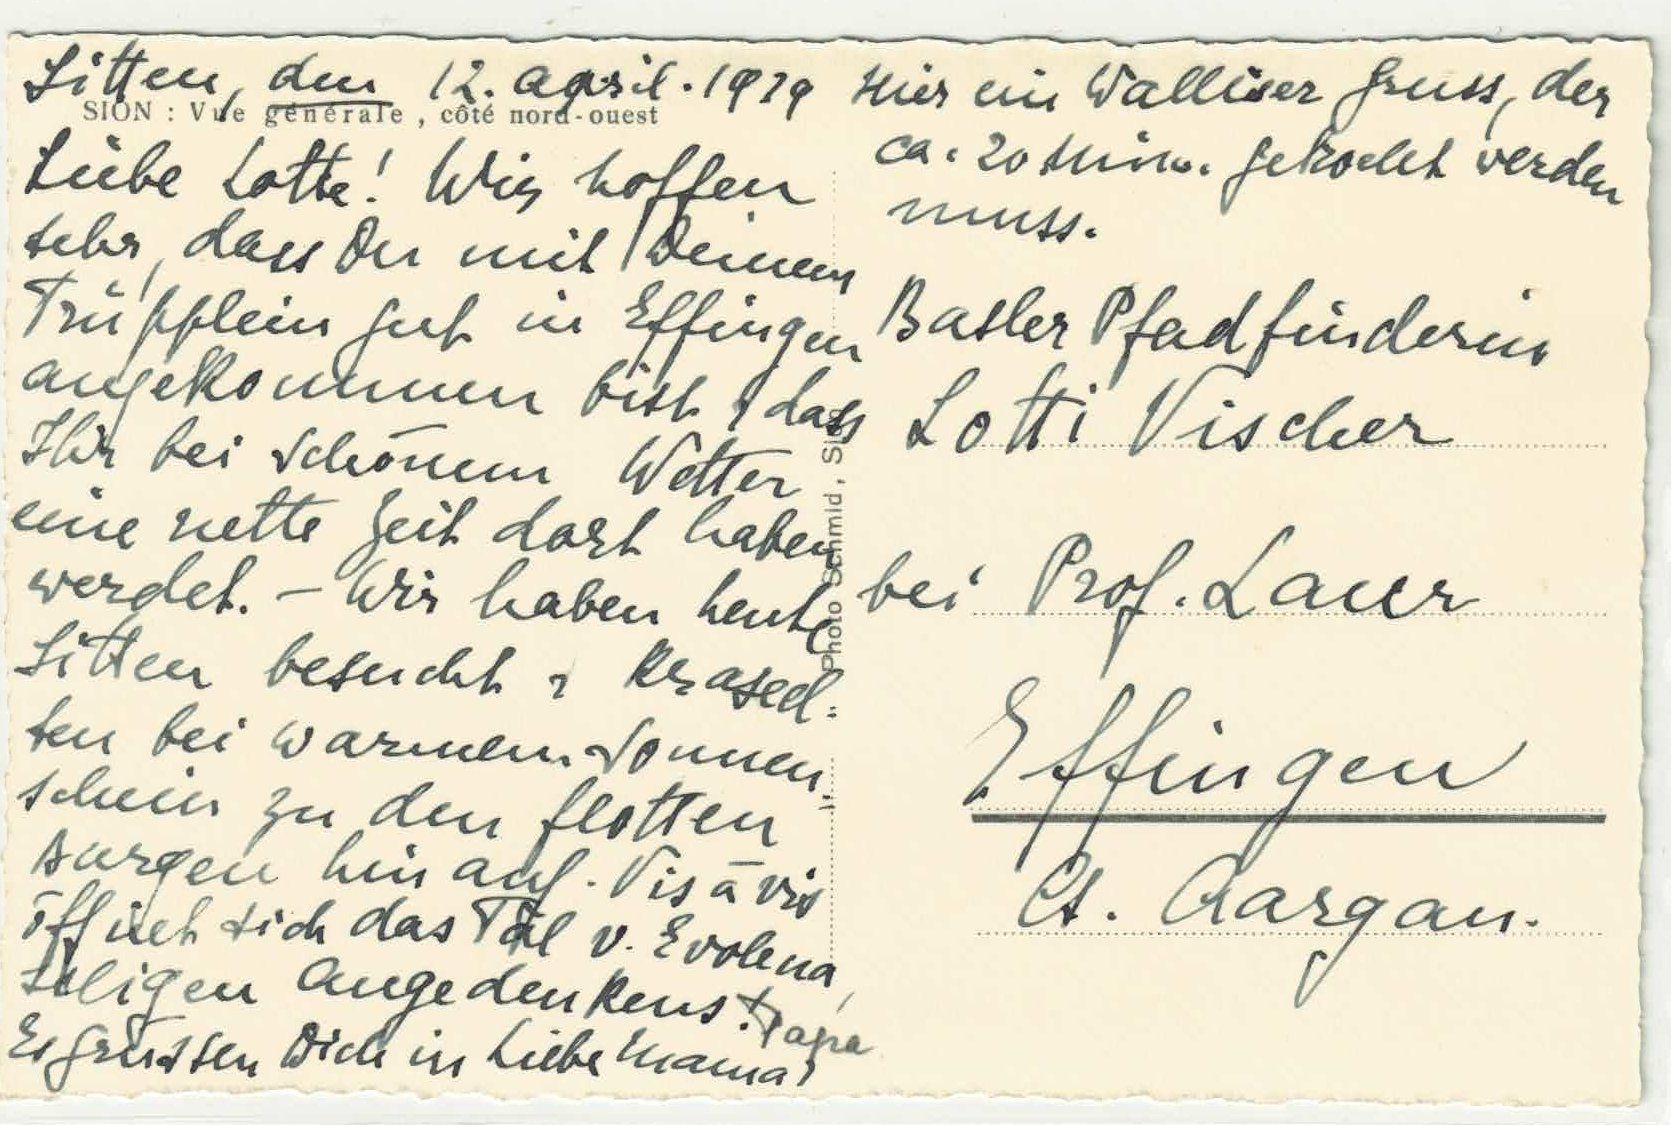 Sitten, den 12. April. 1939
SION : Vue générale , côté nord-ouest
Liebe Lotte! Wir hoffen
sehr, dass Du mit Deinem
Trüpplein gut in Effingen
angekommen bist & dass
Ihr bei schönem Wetter
eine nette Zeit dort haben
werdet. – Wir haben heute
Sitten besucht &
ten bei warmem Sonnen-
schein zu den flotten
Burgen hinauf. Vis à vis
öffnet sich das Tal v. Evolena,
seligen Angedenkens!
Es grüssen Dich in Liebe Mama &
Papa
Photo Schmid, Sion
Hier ein Walliser Gruss, der
ca. 20 Min. gekocht werden
muss.
Basler Pfadfinderin
Lotti Vischer
bei Prof. Laur
Effingen
Ct. Aargau.